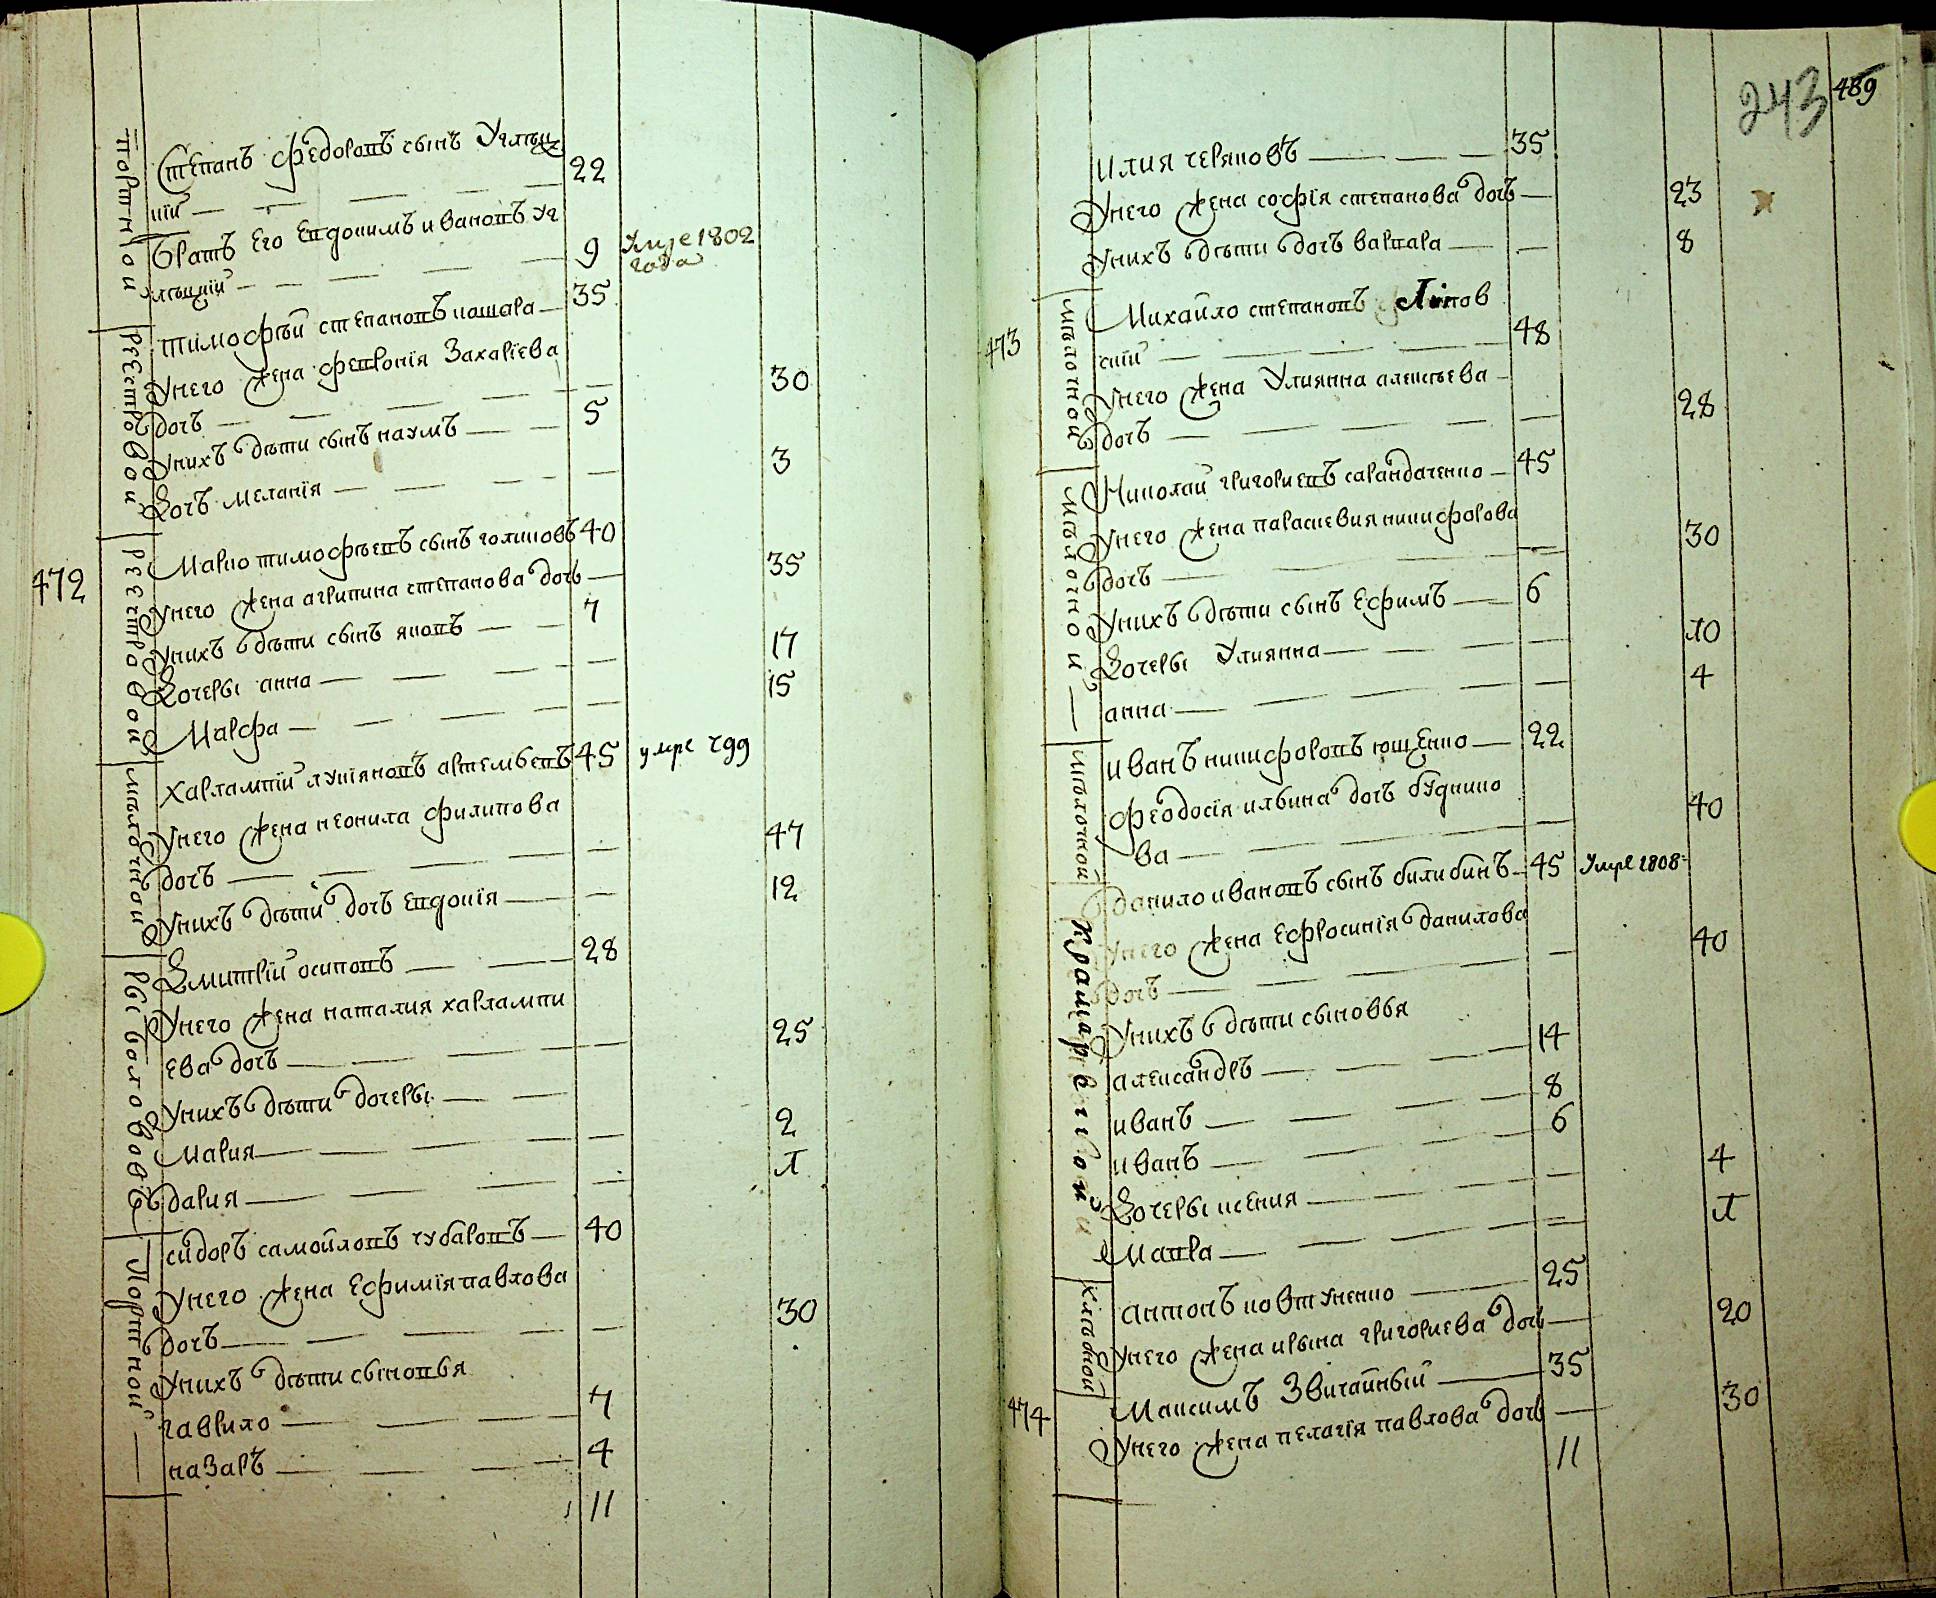 портной
Степанъ федоровъ сынъ Углъиц
кій 22
братъ его Евдокимъ ивановъ уг
лѣцкій 9 Умре 1802
года
реестровой
тимофѣй степановъ кошара 35
Унего жена февронія Захаріева
дочь 30
Унихъ дѣти сынъ наумъ 5
Дочь меланія 3
472
реестровой
Марко тимофѣевъ сынъголиковъ 40
Унего жена агрипина степанова дочь 35
Унихъ дѣти сынъ яковъ 7
Дочеры анна 17
Марфа 15
мѣлочной
харлампій лукіяновъ артемьевъ 45 умре 799
Унего жена неонила филипова
дочь 47
Унихъ дѣти дочь Евдокія 12
рыболововъ
Дмитрій осиповъ 28
Унего жена наталия харлампи
ева дочь 25
Унихъ дѣти дочеры
Мария 2
дария 1
Портной
сидоръ самойловъ чубаровъ 40
Унего жена Ефимія павлова
дочь 30
Унихъ дѣти сыновья
гаврило 7
назаръ 4
11
243
489
илия черяповъ 35
Унего жена софія степанова дочь 23
Унихъ дѣти дочь варвара 8
473
мѣлочной
Михайло степановъ
скій 48
Унего жена Улиянна алексѣева
дочь 28
мѣлочной
Николай григориевъ саранданченко 45
Унего жена параскевия никифорова
дочь 30
Унихъ дѣти сынъ Ефимъ 6
Дочеры Улиянна 10
анна 4
мѣлочной
иванъ никифоровъ ющенко 22
феодосія ильина дочь будкико
ва 40
данило ивановъ сынъ билибинъ 45 Умре 1808
Унего жена Ефросинія данилова
дочь 40
Унихъ дѣти сыновья
александръ 14
иванъ 8
иванъ 6
Дочеры ксения 4
Мавра 1
антонъ ковтуненко 25
Унего жена ирына григориева дочь 20
474
Максимъ Звичайный 35
Унего жена пелагія павлова дочь 30
11